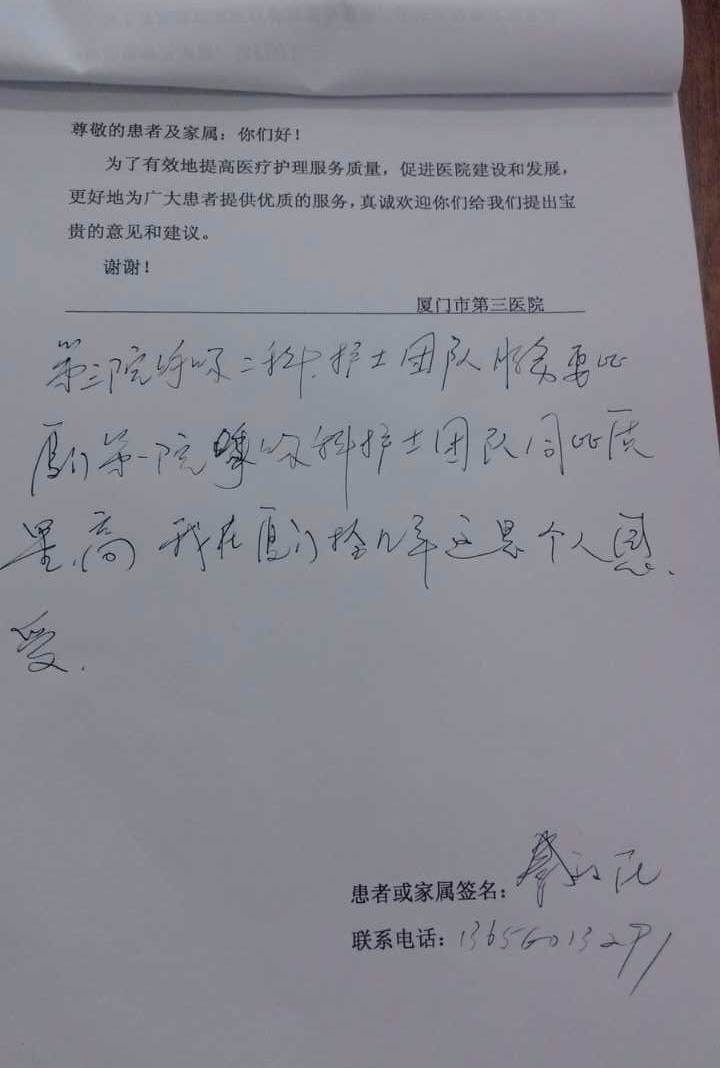 尊敬的患者及家属：你们好！
为了有效地提高医疗护理服务质量，促进医院建设和发展，
更好地为广大患者提供优质的服务，真诚欢迎你们给我们提出宝
贵的意见和建议。
谢谢！
厦门市第三医院
第三院呼吸二科.护士团队服务要比
厦门第一院 吸科护士团队同比质
量.高 我在厦门 几年这是个人感.
受.
患者或家属签名：
联系电话：